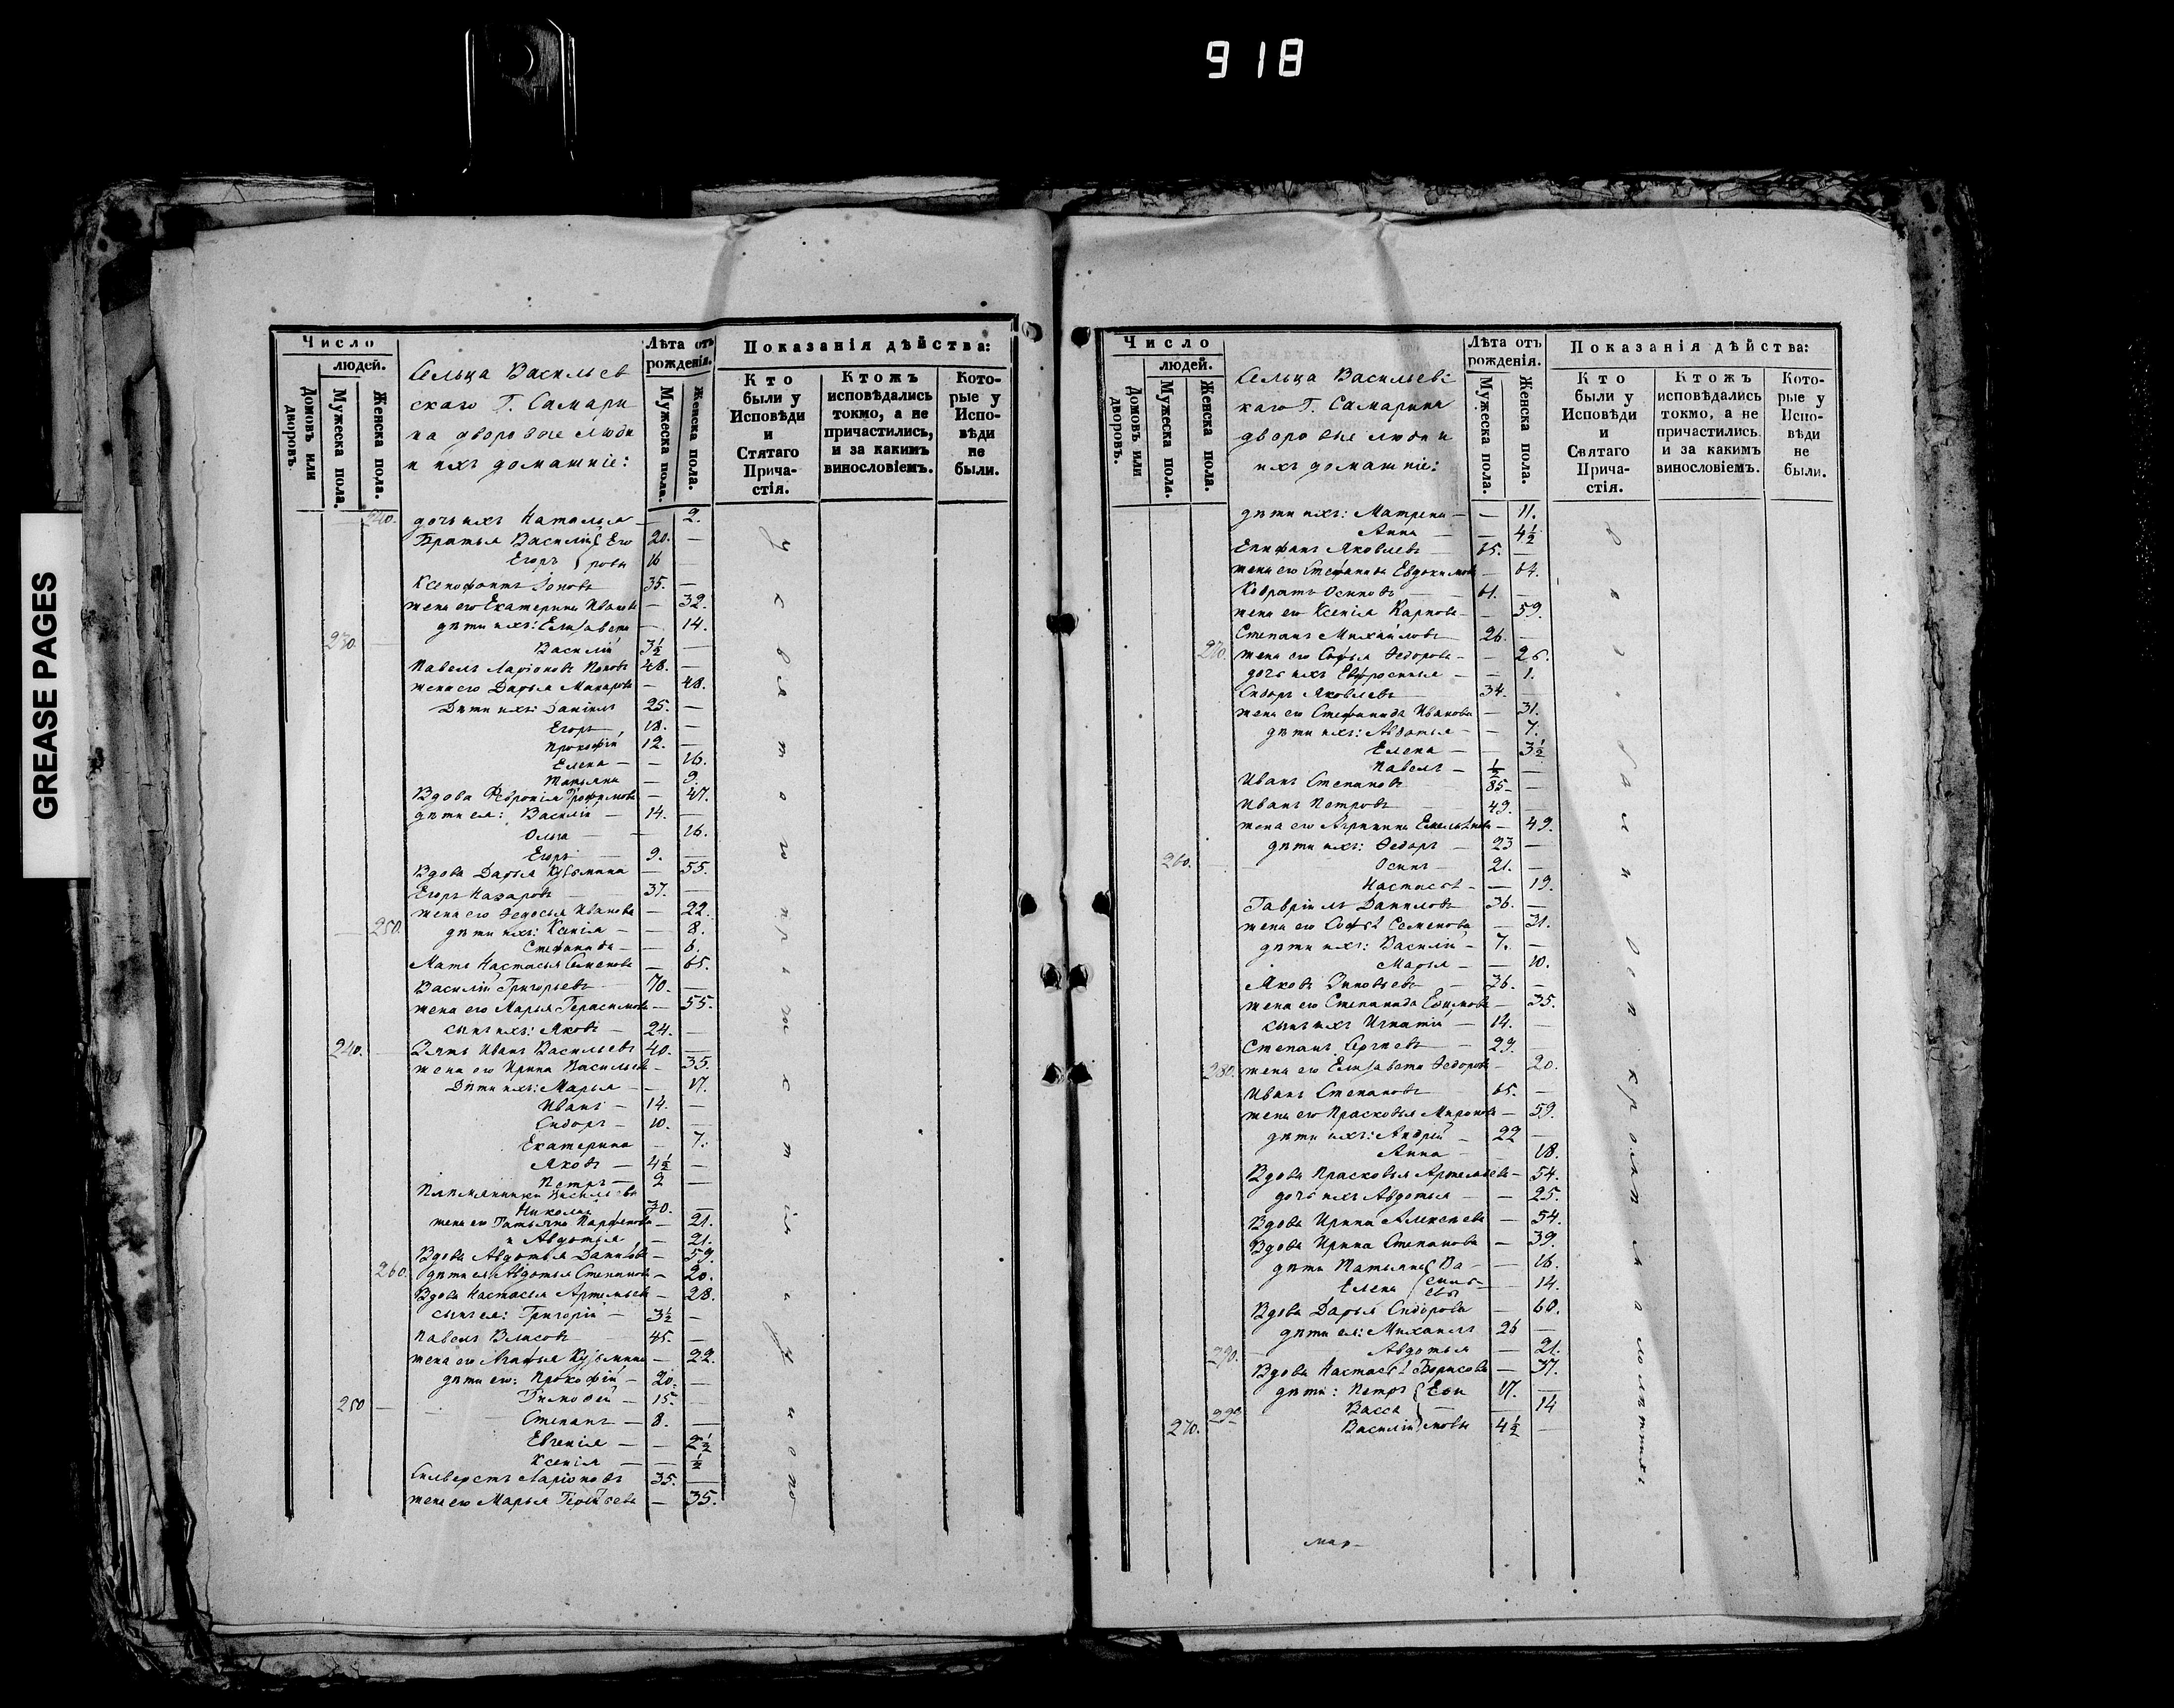 918
GREASE PAGES
Число
людей.
Домовъ или дворовъ.
Мужеска пола.
Женска пола.
Сельца Васильев
скаго Г. Самари
на дворовые люди
и ихъ домашніе:
Лѣта отъ рожденія.
Мужеска пола.
Женска пола.
Показанія дѣйства:
Кто были у Исповѣди и Стятаго Прича-стія.
Ктожъ исповѣдались токмо, а не причастились, и за какимъ винословіемъ.
Кото-рые у Испо-вѣди не были.
240. дочь ихъ Наталья — 2.
Братья Василій Его 20. —
Егоръ ровы 16 —
Ксенофонтъ Зоновъ 35. —
жена его Екатерина Иванова — 32.
дѣти ихъ: Елизавета — 14.
230. — Василій 3½ —
Павелъ Ларіоновъ Поповъ 48. —
жена его Дарья Макарова — 48.
Дѣти ихъ: Даніилъ 25. —
Егоръ 18. —
Прокофій 12. —
Елена — — 16.
Татьяна — 9.
Вдова Февронія Трофимова — 47.
дѣти ея: Василій — 14. —
Ольга — — 16.
Егоръ — 9. —
Вдова Дарья Кузьмина — 55.
Егоръ Назаровъ 37. —
жена его Федосья Иванова — 22.
250. дѣти ихъ: Ксенія — — 8.
Стефанида — — 6.
Мать Настасья Семенова — 65.
Василій Григорьевъ 70. —
жена его Марья Герасимова — 55.
сынъ ихъ: Яковъ — 24. —
240. — Зять Иванъ Васильевъ 40. —
жена его Ирина Васильева — 35.
Дѣти ихъ: Марья — — 17.
Иванъ — 14. —
Сидоръ — 10. —
Екатерина — 7.
Яковъ — 4½ —
Петръ — 2 —
Племянники Васильевы
Николай 30. —
жена его Татьяна Парфенова — 21.
и Авдотья — 21.
Вдова Авдотья Данилова — 59.
260. дѣти ея Авдотья Степанова — 20.
Вдова Настасья Артемьева — 28.
сынъ ея: Григорій — 3½ —
Павелъ Власовъ 45. —
жена его Агафья Кузьмина — 22.
дѣти его: Прокофій — 20. —
250 — Тимофей — 15. —
Степанъ — 8. —
Евгенія — — 2½
Ксенія — — ½
Сильверстъ Ларіоновъ 35. —
жена его Марья — 35.
у святаго причастія
Число
людей.
Домовъ или дворовъ.
Мужеска пола.
Женска пола.
Сельца Васильевс
каго Г. Самарина
дворовые люди и
ихъ домашніе:
Лѣта отъ рожденія.
Мужеска пола.
Женска пола.
Показанія дѣйства:
Кто были у Исповѣди и Святаго Прича-стія.
Ктожъ исповѣдались токмо, а не причастились и за какимъ винословіемъ.
Кото-рые у Испо-вѣди не были.
дѣти ихъ: Матрена — — 11.
Анна — — 4½
Епифанъ Яковлевъ 65. —
жена его Стефанида Евдокимова — 64.
Кодратъ Осиповъ — 61. —
жена его Ксенія Карпова — — 59.
Степанъ Михайловъ 26. —
270. жена его Софья Федорова — — 26.
дочь ихъ Евфросинья — — 1.
Сидоръ Яковлевъ 34. —
жена его Стефанида Иванова — 31.
дѣти ихъ: Авдотья — — 7.
Елена — — 3½
Павелъ — ½ —
Иванъ Степановъ 85 — —
Иванъ Петровъ 49. —
жена его Агрипина Емельянова — 49.
дѣти ихъ: Федоръ — 23 —
260. Осипъ — 21. —
Настасья — — 19.
Гавріилъ Даниловъ 36. —
жена его Софья Семенова — 31.
дѣти ихъ: Василій — 7. —
Марья — — 10.
Яковъ Зиновьевъ — 36. —
жена его Степанида Ефимова — 35.
сынъ ихъ Игнатій — 14. —
Степанъ Сергѣевъ — 29. —
280. жена его Елизавета Федорова — 20.
Иванъ Степановъ 65. —
жена его Прасковья Миронова — 59.
дѣти ихъ: Андрей — 22 —
Анна — — 18.
Вдова Прасковья Артемьева — 54.
дочь ихъ Авдотья — — 25.
Вдова Ирина Алексѣева — 54.
Вдова Ирина Степанова — 39.
дѣти Татьяна Ва — — 16.
Елена сильевы — 14.
Вдова Дарья Сидорова — 60.
дѣти ея: Михаилъ 26 —
290. Авдотья — 21.
Вдова Настасья Борисова — 37.
дѣти: Петръ Ефи 17. —
292 Васса — — 14
270. Василій мовы 4½ —
были вси кромѣ малолѣтныхъ